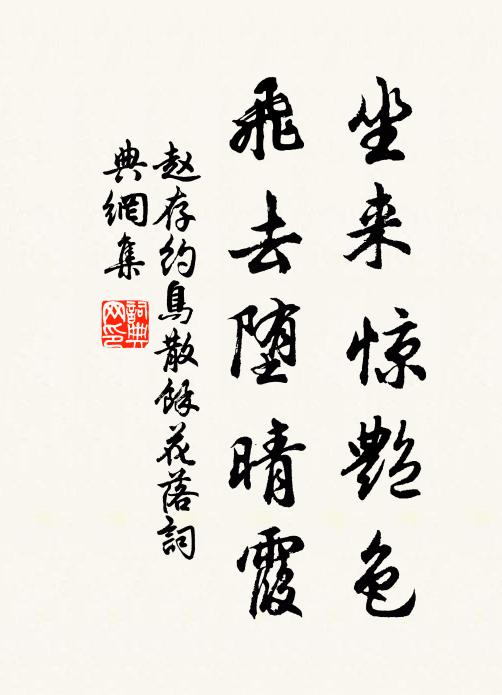 坐来惊艳色
飞去堕晴霞
赵存约鸟散馀花落词
典网集
词典
网印